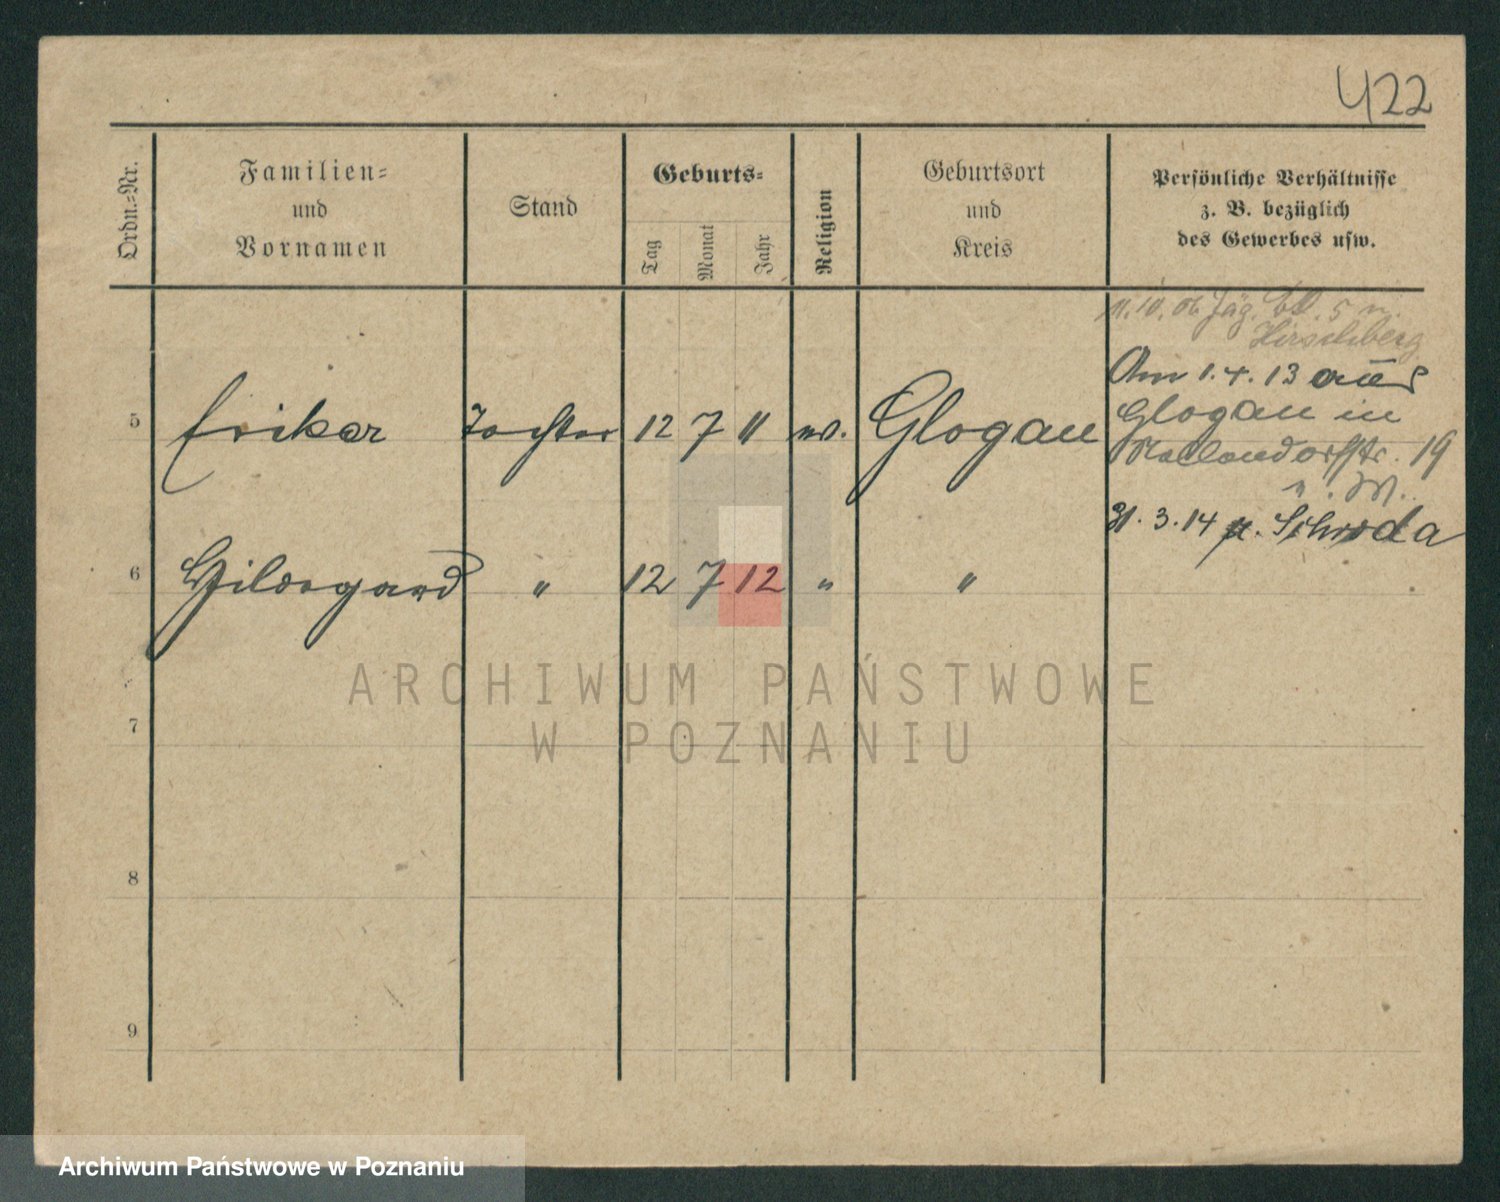 422
Ordn.-Nr.
Familien-
und
Vornamen
Stand
Geburts-
Tag
Monat
Jahr
Religion
Geburtsort
und
Kreis
Persönliche Verhältnisse
z. B. bezüglich
des Gewerbes usw.
Jäg. Btl. 5 n.
Hirschberg
Am 1.4.13 aus
Glogau in
Nollendorfstr. 19
5 Erika Tochter 12 7 11 ev. Glogau
31.3.14 n. Schroda
6 Hildegard " 12 7 12 " "
7
8
9
ARCHIWUM PAŃSTWOWE
W POZNANIU
Archiwum Państwowe w Poznaniu